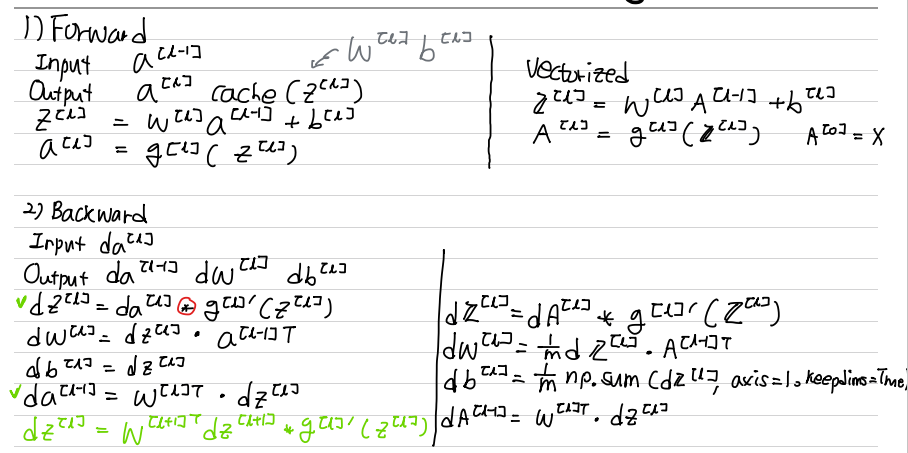 1) Forward
Input a^[l-1]
W^[l] b^[l]
Output a^[l] cache (z^[l])
z^[l] = W^[l] a^[l-1] + b^[l]
a^[l] = g^[l] ( z^[l])
Vectorized
Z^[l] = W^[l] A^[l-1] + b^[l]
A^[l] = g^[l] (Z^[l]) A^[0] = X
2) Backward
Input da^[l]
Output da^[l-1] dW^[l] db^[l]
✓ dz^[l] = da^[l] * g^[l]' (z^[l])
dW^[l] = dz^[l] · a^[l-1]T
db^[l] = dz^[l]
✓ da^[l-1] = W^[l]T · dz^[l]
dz^[l] = W^[l+1]T dz^[l+1] * g^[l]' (z^[l])
dZ^[l] = dA^[l] * g^[l]' (Z^[l])
dW^[l] = 1/m dZ^[l] · A^[l-1]T
db^[l] = 1/m np.sum (dz^[l], axis=1, keepdims=True)
dA^[l-1] = W^[l]T · dz^[l]